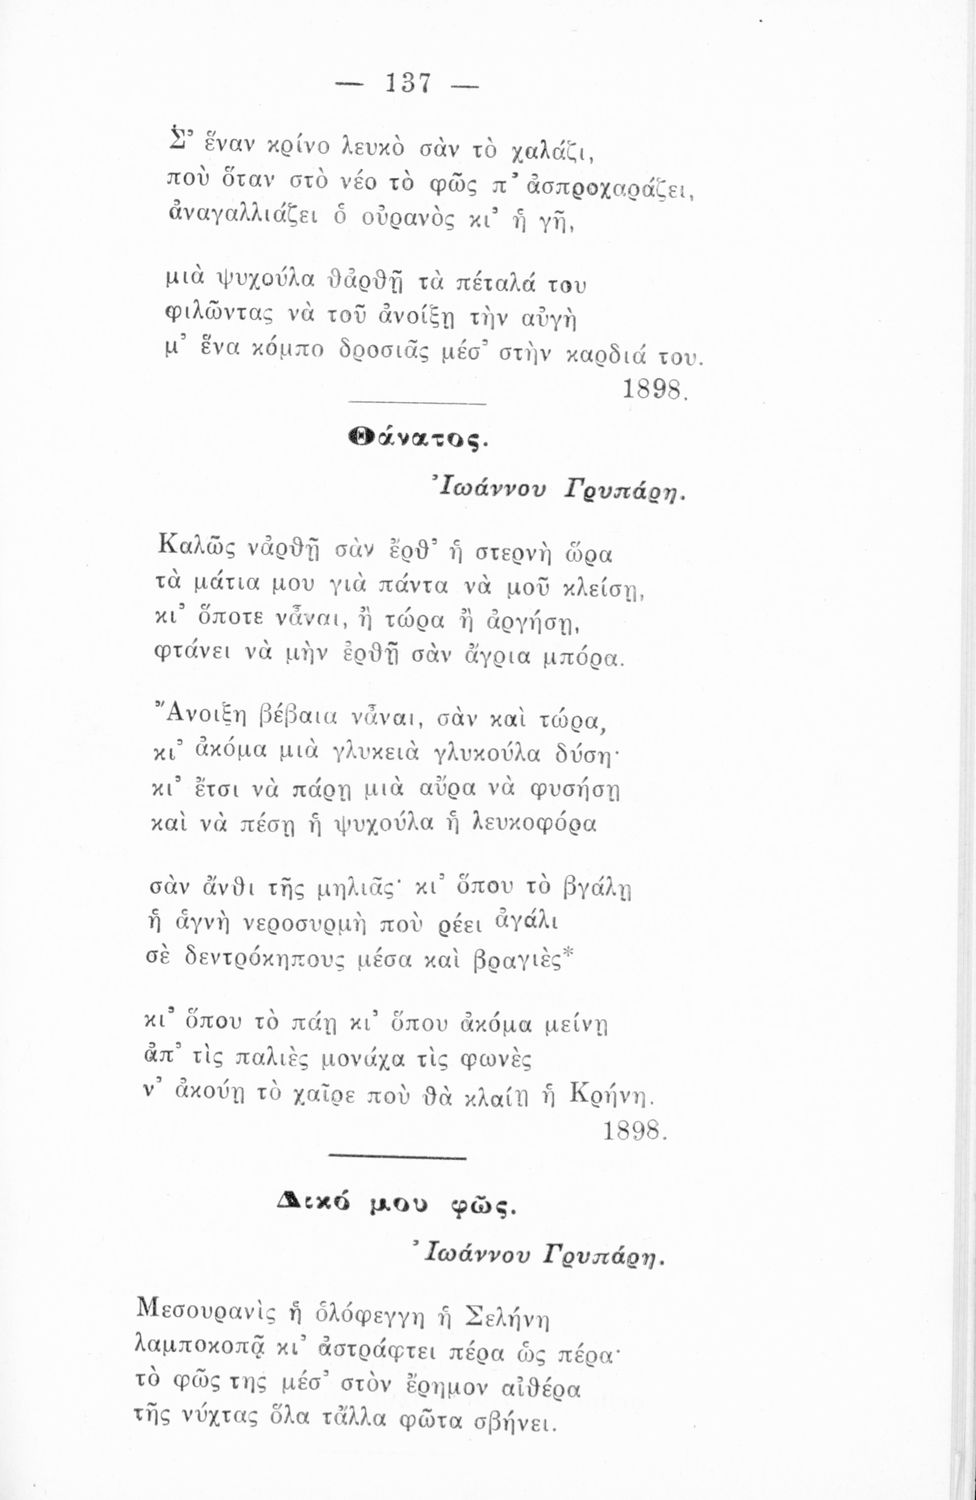 — 137 —
Σ' ἕναν κρίνο λευκὸ σὰν τὸ χαλάζι,
ποὺ ὅταν στὸ νέο τὸ φῶς π' ἀσπροχαράζει,
ἀναγαλλιάζει ὁ οὐρανὸς κι' ἡ γῆ,
μιὰ ψυχούλα θἀρθῇ τὰ πέταλά του
φιλῶντας νὰ τοῦ ἀνοίξῃ τὴν αὐγὴ
μ' ἕνα κόμπο δροσιᾶς μέσ' στὴν καρδιά του.
1898.
Θάνατος.
Ἰωάννου Γρυπάρη.
Καλῶς νἀρθῇ σὰν ἔρθ' ἡ στερνὴ ὥρα
τὰ μάτια μου γιὰ πάντα νὰ μοῦ κλείσῃ,
κι' ὅποτε νἆναι, ἢ τώρα ἢ ἀργήσῃ,
φτάνει νὰ μὴν ἐρθῇ σὰν ἄγρια μπόρα.
Ἄνοιξη βέβαια νἆναι, σὰν καὶ τώρα,
κι' ἀκόμα μιὰ γλυκειὰ γλυκούλα δύση·
κι' ἔτσι νὰ πάρῃ μιὰ αὔρα νὰ φυσήσῃ
καὶ νὰ πέσῃ ἡ ψυχούλα ἡ λευκοφόρα
σὰν ἄνθι τῆς μηλιᾶς· κι' ὅπου τὸ βγάλῃ
ἡ ἁγνὴ νεροσυρμὴ ποὺ ρέει ἀγάλι
σὲ δεντρόκηπους μέσα καὶ βραγιὲς*
κι' ὅπου τὸ πάῃ κι' ὅπου ἀκόμα μείνῃ
ἀπ' τὶς παλιὲς μονάχα τὶς φωνὲς
ν' ἀκούῃ τὸ χαῖρε ποὺ θὰ κλαίῃ ἡ Κρήνη.
1898.
Δικό μου φῶς.
Ἰωάννου Γρυπάρη.
Μεσουρανὶς ἡ ὁλόφεγγη ἡ Σελήνη
λαμποκοπᾷ κι' ἀστράφτει πέρα ὡς πέρα·
τὸ φῶς της μέσ' στὸν ἔρημον αἰθέρα
τῆς νύχτας ὅλα τἄλλα φῶτα σβήνει.